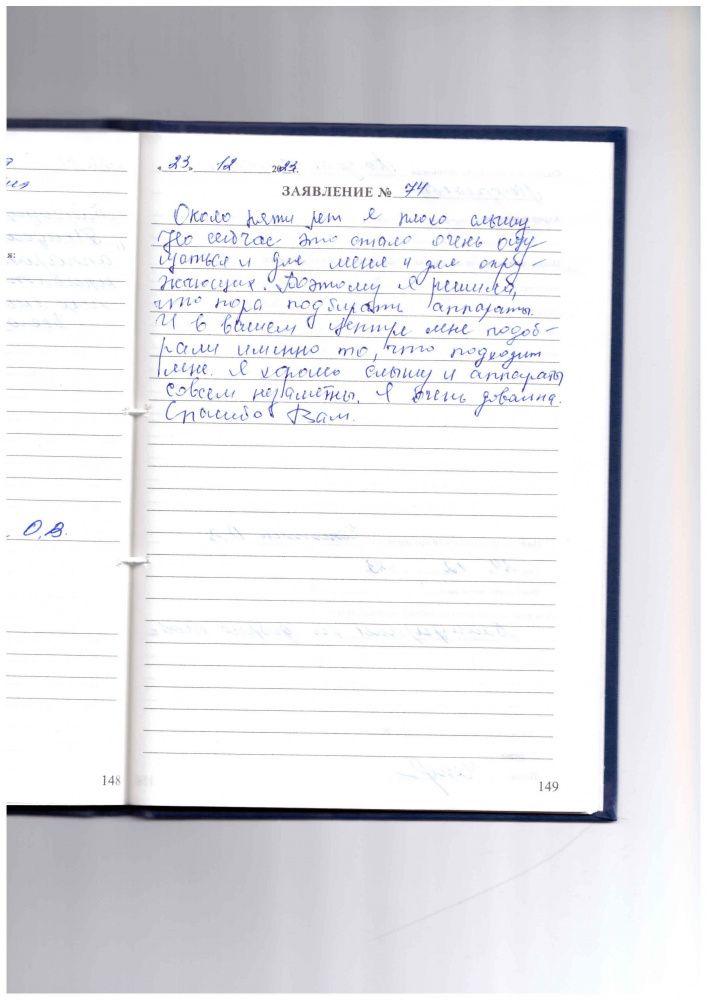 « 23 » 12 2023.
ЗАЯВЛЕНИЕ № 74
Около пяти лет я плохо слышу
Но сейчас это стало очень ощу-
щаться и для меня и для окру-
жающих. Поэтому я решила,
что пора подбирать аппараты.
И в вашем центре мне подоб-
рали именно то, что подходит
мне. Я хорошо слышу и аппараты
совсем незаметны. Я очень довольна.
Спасибо Вам.
О.В.
148
149